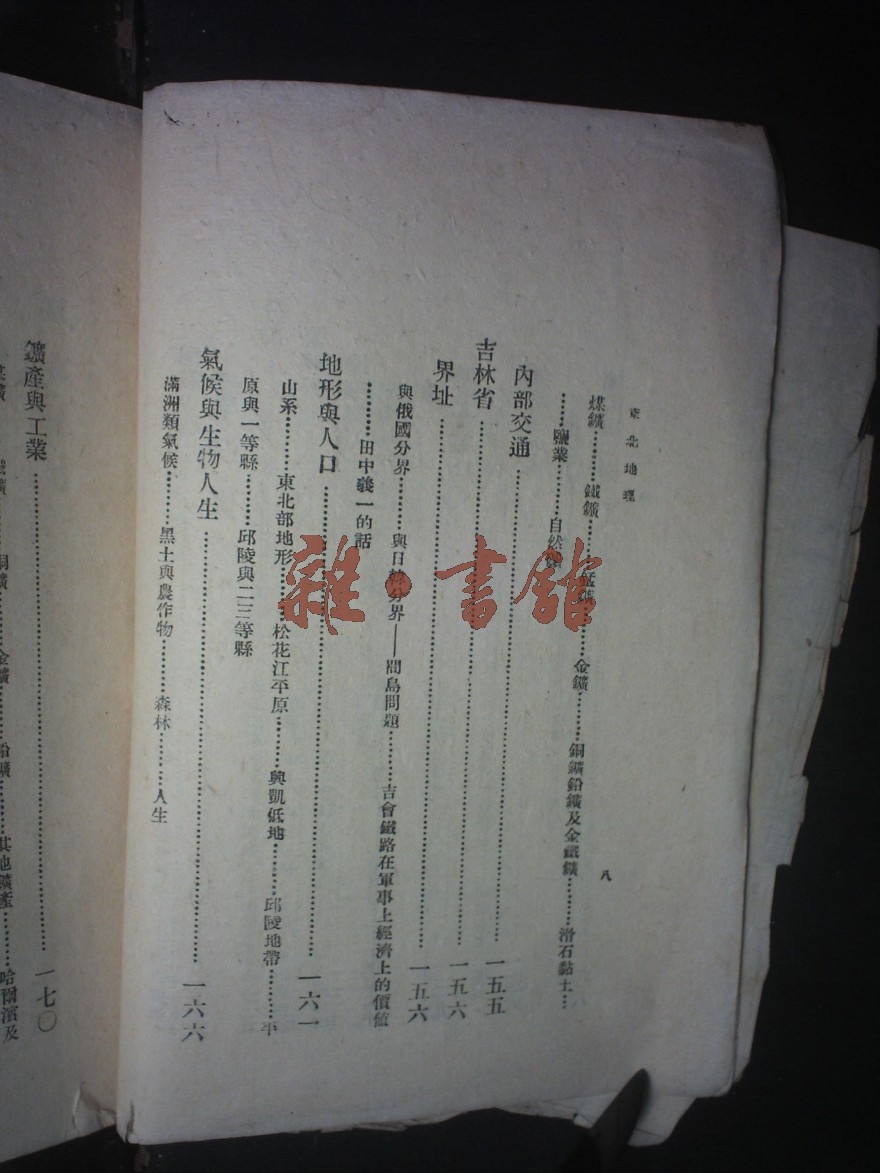 東北地理
八
煤鑛…………鐵鑛…………錳鑛…………金鑛…………銅鑛鉛鑛及金鐵鑛…………滑石黏土…
………鹽業…………自然
內部交通…………一五五
吉林省…………一五六
界址…………一五六
與俄國分界…………與日韓分界——間島問題…………吉會鐵路在軍事上經濟上的價值
…………田中義一的話
地形與人口…………一六一
山系…………東北部地形…………松花江平原…………興凱低地…………邱陵地帶…………平
原與一等縣…………邱陵與二三等縣
氣候與生物人生…………一六六
滿洲類氣候…………黑土與農作物…………森林…………人生
鑛產與工業…………一七〇
煤鑛 鐵鑛…………銅鑛…………金鑛…………鉛鑛…………其他鑛產…………哈爾濱及
雜·書館